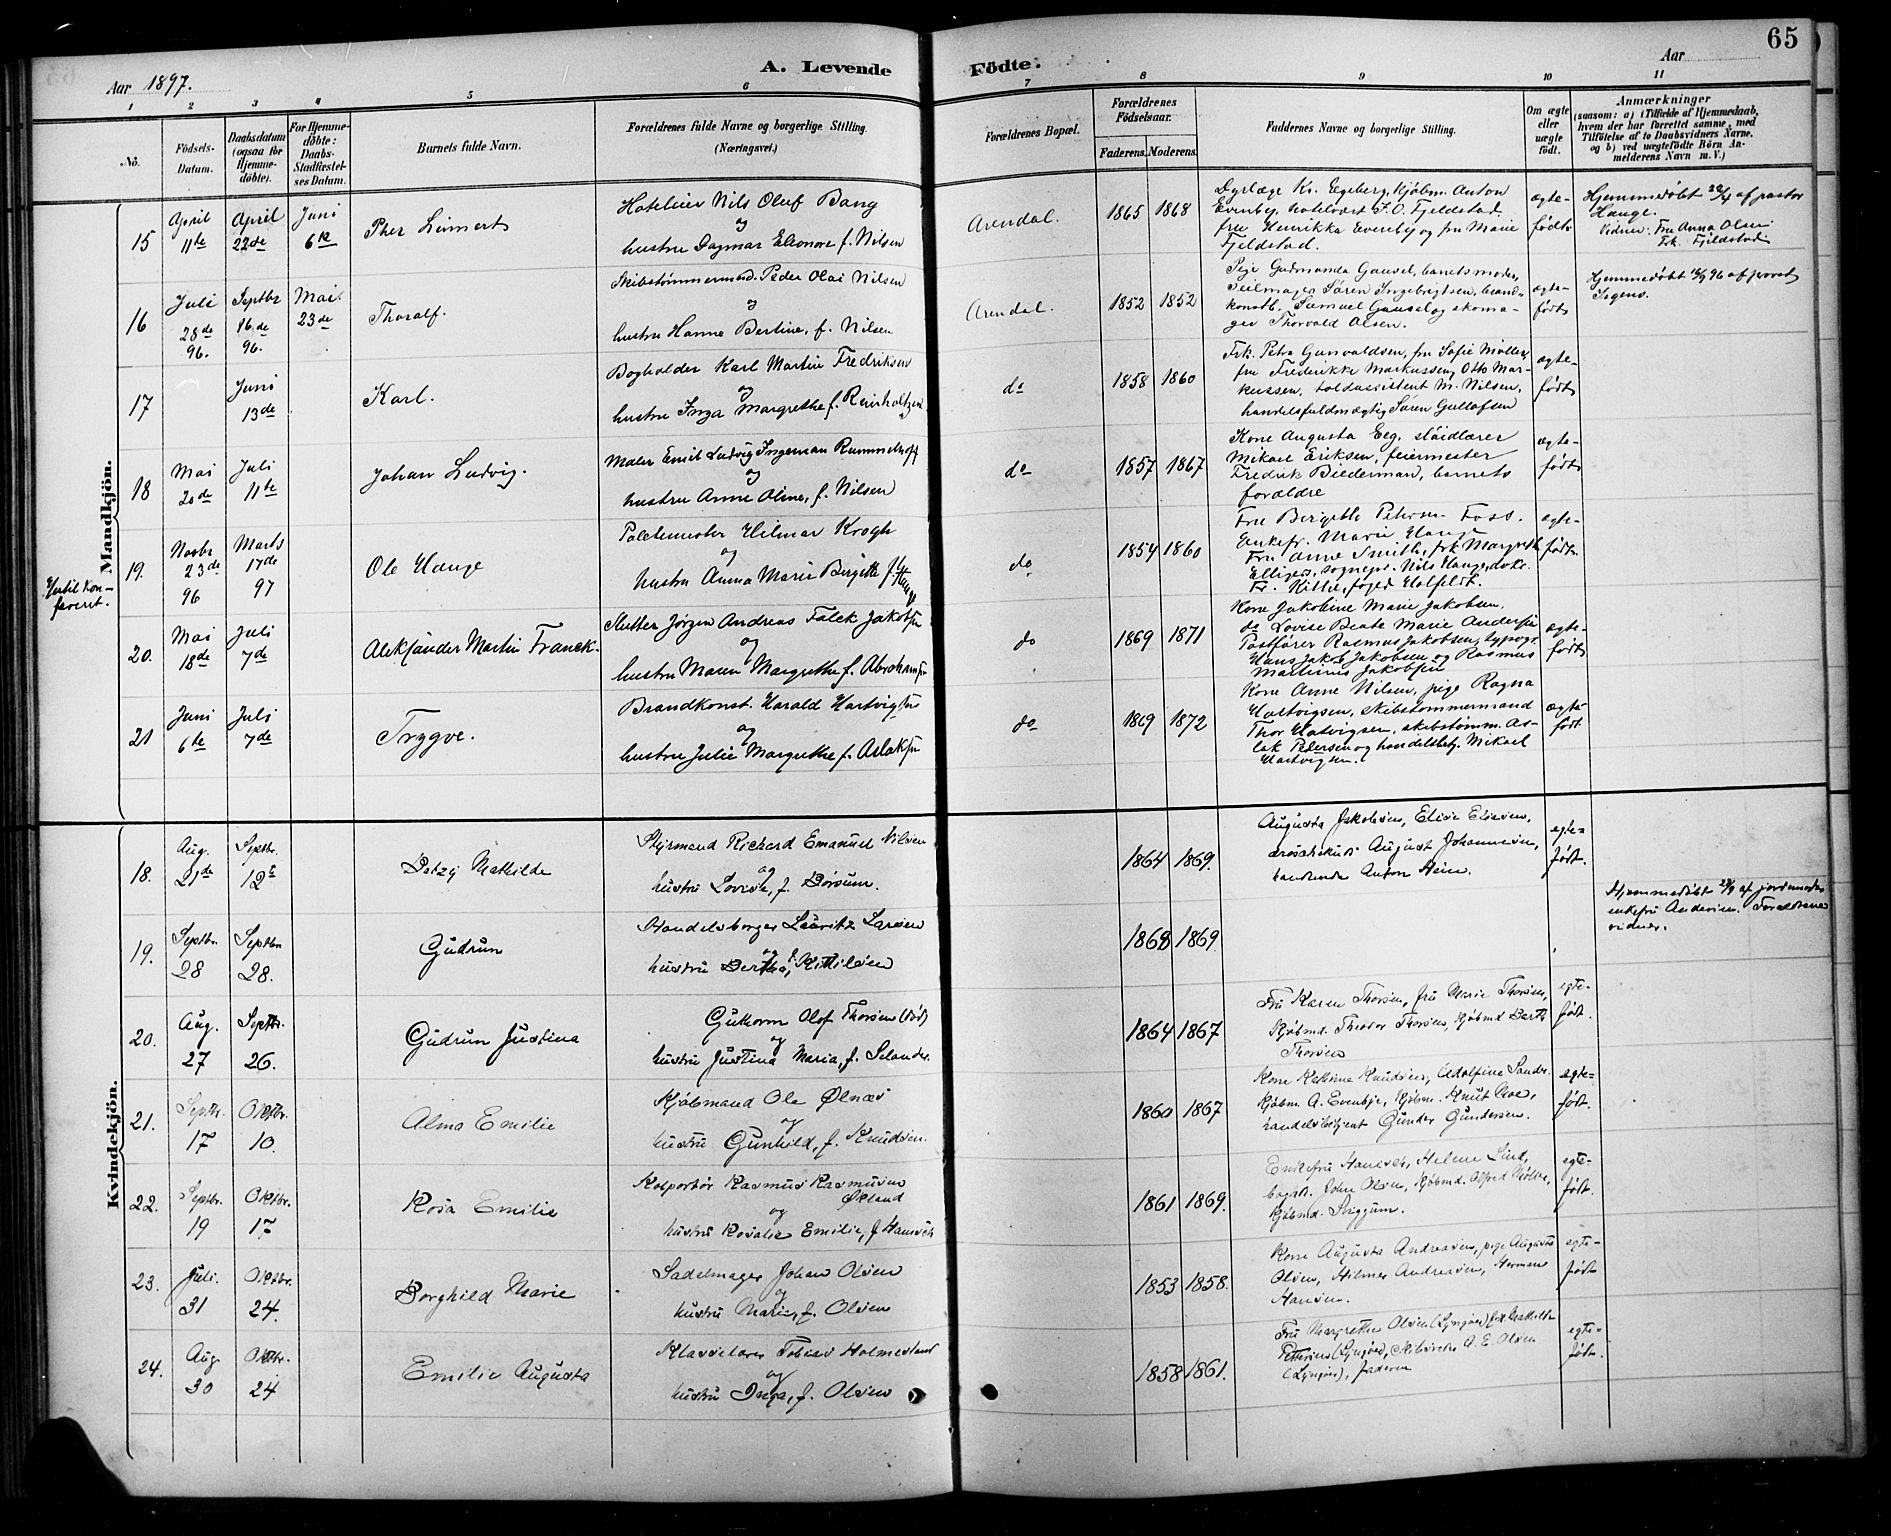 65
Aar 1897.
A. Levende Födte.
Aar
1 2 3 4 5 6 7 8 9 10 11
Nö.
Födsels-Datum.
Daabsdatum (ogsaa för Hjemmedöbte).
For Hjemmedöbte: Daabs-Stadfæstelses Datum.
Barnets fulde Navn.
Forældrenes fulde Navne og borgerlige Stilling. (Næringsvei.)
Forældrenes Bopæl.
Forældrenes Födselsaar.
Faderens. Moderens.
Faddernes Navne og borgerlige Stilling.
Om ægte eller uægte födt.
Anmærkninger
(saasom: a) i Tilfælde af Hjemmedaab, hvem der har forrettet samme, med Tilföielse af to Daabsvidners Navne, og b) ved uægtefödte Börn Anmelderens Navn m. V.)
Mandkjön.
15 April 11te April 22de Juni 6te
Hotelier Nils Oluf Bang
og
hustru Dagmar Eleonore f. Nilsen
Arendal. 1865 1868
Dyrlæge Kr. Egeberg, kjøbm. Anton
Evenbye, hotelvært F. O. Fjeldstad
fru Henrikka Evenbye og fru Marie
Fjeldstad.
ægte-født
Hjemmedøbt 22/4 af pastor
Hauge.
Vidner: Fru Anna Olsen
Frk. Fjeldstad
16 Juli 28de 96. Septbr 16.de 96. Mai 23de
Thoralf.
Skibstømmermand Peder Olai Nilsen
og
hustru Hanne Bertine, f. Nilsen
Arendal. 1852 1852
Pige Gudmanda Gausel, barnets moder,
Seilmager Søren Ingebrigtsen, brand-
konstb. Samuel Gausel og skoma-
ger Thorvald Olsen.
ægte-født
Hjemmedøbt 16/9 96 af provst
17 Juni 13de
Karl.
Bogholder Karl Martin Fredriksen
og
hustru Inga Margrethe f. Reinholtzen
do 1858 1860
Frk. Petra Gunvaldsen, fru Sofie Møller,
fru Frederikke Markussen, Otto Mar-
kussen, toldassistent M. Nilsen,
handelsfuldmægtig Søren Gullofsen
ægte-født
18 Mai 20de Juli 11te
Johan Ludvig.
Maler Emil Ludvig Ingeman Rummelhoff
og
hustru Anne Oline, f. Nilsen
do 1857 1867
Kone Augusta Eeg, sløidlærer
Mikael Eriksen, feiermester
Fredrik Biederman, barnets
forældre
ægte-født
19. Novbr 23de 96 Marts 17de 97
Ole Hauge
Politimester Hilmar Krogh
og
hustru Anna Marie Birgitte f. Hauge
do 1854 1860
Fru Bergitte Petersen Foss.
Enkefr. Marie Hauge
Fru Anne Smith, frk Margrethe
sognepr. Nils Hauge, doktr.
foged Holfeldt.
ægte-født
Hertil Kon-
fereret.
20. Mai 18de Juli 7de
Aleksander Martin Franck.
Slutter Jørgen Andreas Falck Jakobsen
og
hustru Maren Margrethe f. Abrahamsen
do 1869 1871
Kone Jakobine Marie Jakobsen.
do Lovise Beate Marie Andersen
Postfører Rasmus Jakobsen, typogr.
Hans Jakob Jakobsen og Rasmus
Martinius Jakobsen
ægte-født
21 Juni 6te Juli 7de
Trygve.
Brandkonst. Harald Hartvigsen
og
hustru Julie Margrethe f. Aslaksen
do 1869 1872
Kone Anne Nilsen, pige Ragna
Hartvigsen, skibstømmermand
Thor Hatvigsen, skibstømm. As-
lak Pedersen og handelsbetj. Mikael
Hartvigsen.
ægte født
Kvindekjön.
18. Aug. 21de Septbr. 12te
Betzy Mathilde
Styrmand Richard Emanuel Nilsen
og
hustru Lovise, f. Børsum.
1864 1869.
Augusta Jakobsen, Elise Eliesen,
August Johannesen,
Anton Heim.
egte-født.
19. Septbr. 28 Septbr 28.
Gudrun
Handelsborger Lauritz Larsen
og
hustru Bertha, f. Kittilsen
1868 1869.
Hjemmedøbt 28/9 af jordemoder
enkefru Andersen. Forældrene
vidner.
20. Aug. 27 Septbr. 26.
Gudrun Justina
Guthorm Olof Thorsen (død)
og
hustru Justina Maria, f. Selander.
1864 1867
Fru Karen Thorsen, fru Marie Thorsen,
Kjøbmd. Theodor Thorsen, kjøbmd Barth
Thorsen
egte-født.
21. Septbr. 17 Oktbr. 10.
Alma Emilie
Kjøbmand Ole Ølnæs
og
hustru Gunhild, f. Knudsen.
1860 1867
Kone Kathrine Knudsen, Adolfine Sande.
Kjøbm. A. Evenbye, kjøbm. Knut Moe,
handelsbetjent Gunder Gundersen.
egte-født.
22. Septbr. 19 Oktbr. 17
Rosa Emilie
Kolportør Rasmus Rasmusen
Økland
og
hustru Rosalie Emilie, f Hansen
1861 1869.
Enkefru Hansen, Helene Lind,
boghdl. John Olsen, Kjøbmd. Alfred Møller,
kjøbmd. Sviggum.
egte-født.
23. Juli. 31 Oktbr. 24.
Borghild Marie
Sadelmager Johan Olsen
og
hustru Marie, f. Olsen
1853 1858.
Kone Augusta Andreasen, pige Augusta
Olsen, Hilmer Andreasen, Herman
Hansen.
egte-født
24. Aug. 30 Oktbr. 24
Emilie Augusta
Klasselærer Tobias Holmesland
og
hustru Inga, f. Olsen
1858 1861.
Fru Margrethe Olsen (Lyngør), frk Mathilde
Pettersen (Lyngør), Skibsreder A. E. Olsen
(Lyngør), faderen
egte-født.